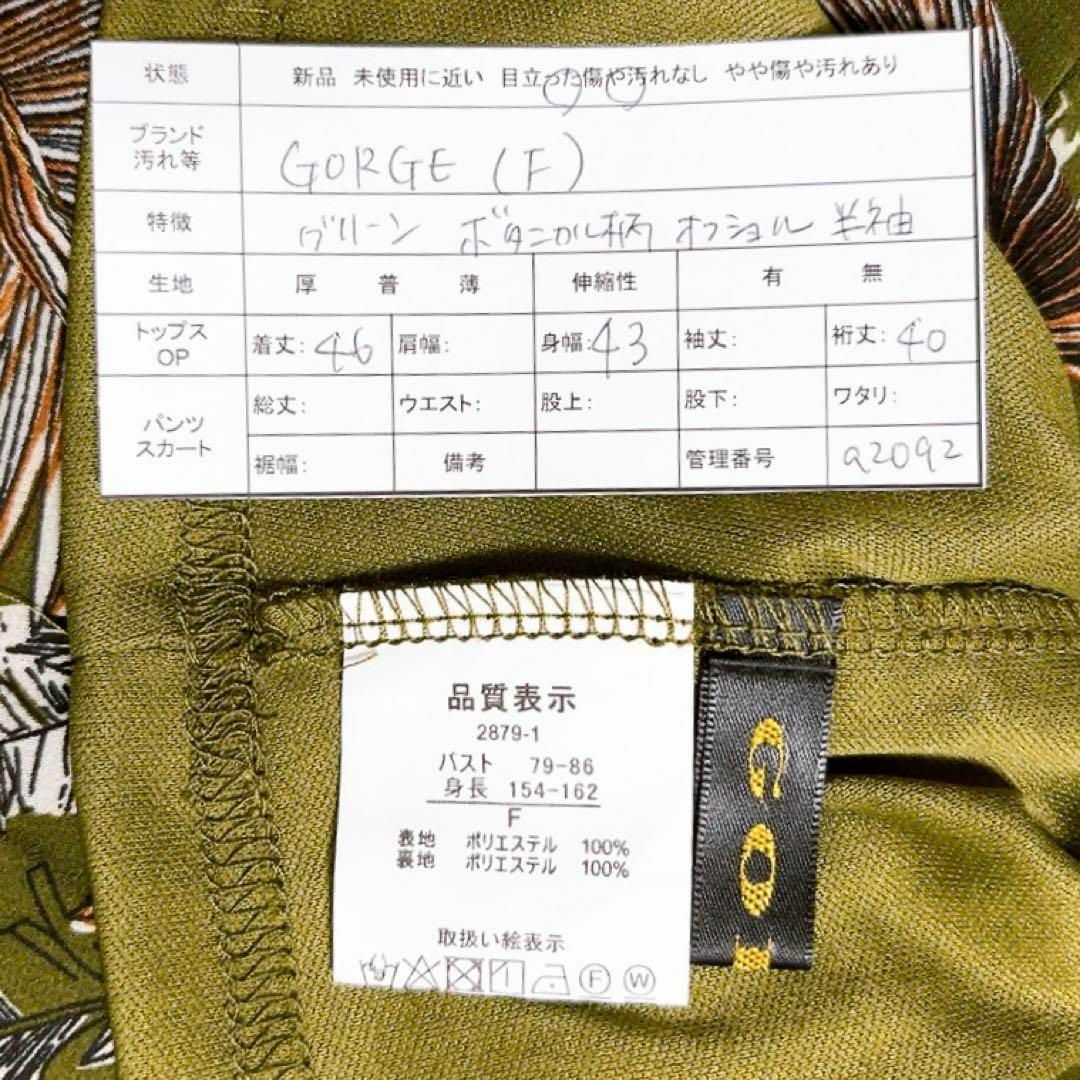 状態 新品 未使用に近い 目立った傷や汚れなし やや傷や汚れあり
ブランド
汚れ等
GORGE (F)
特徴 グリーン ボタニカル柄 オフショル 半袖
生地 厚 普 薄 伸縮性 有 無
トップス
OP
着丈: 46 肩幅: 身幅: 43 袖丈: 裄丈: 40
パンツ
スカート
総丈: ウエスト: 股上: 股下: ワタリ:
裾幅: 備考 管理番号 a2092
品質表示
2879-1
バスト 79-86
身長 154-162
F
表地 ポリエステル 100%
裏地 ポリエステル 100%
取扱い絵表示
F W
GO